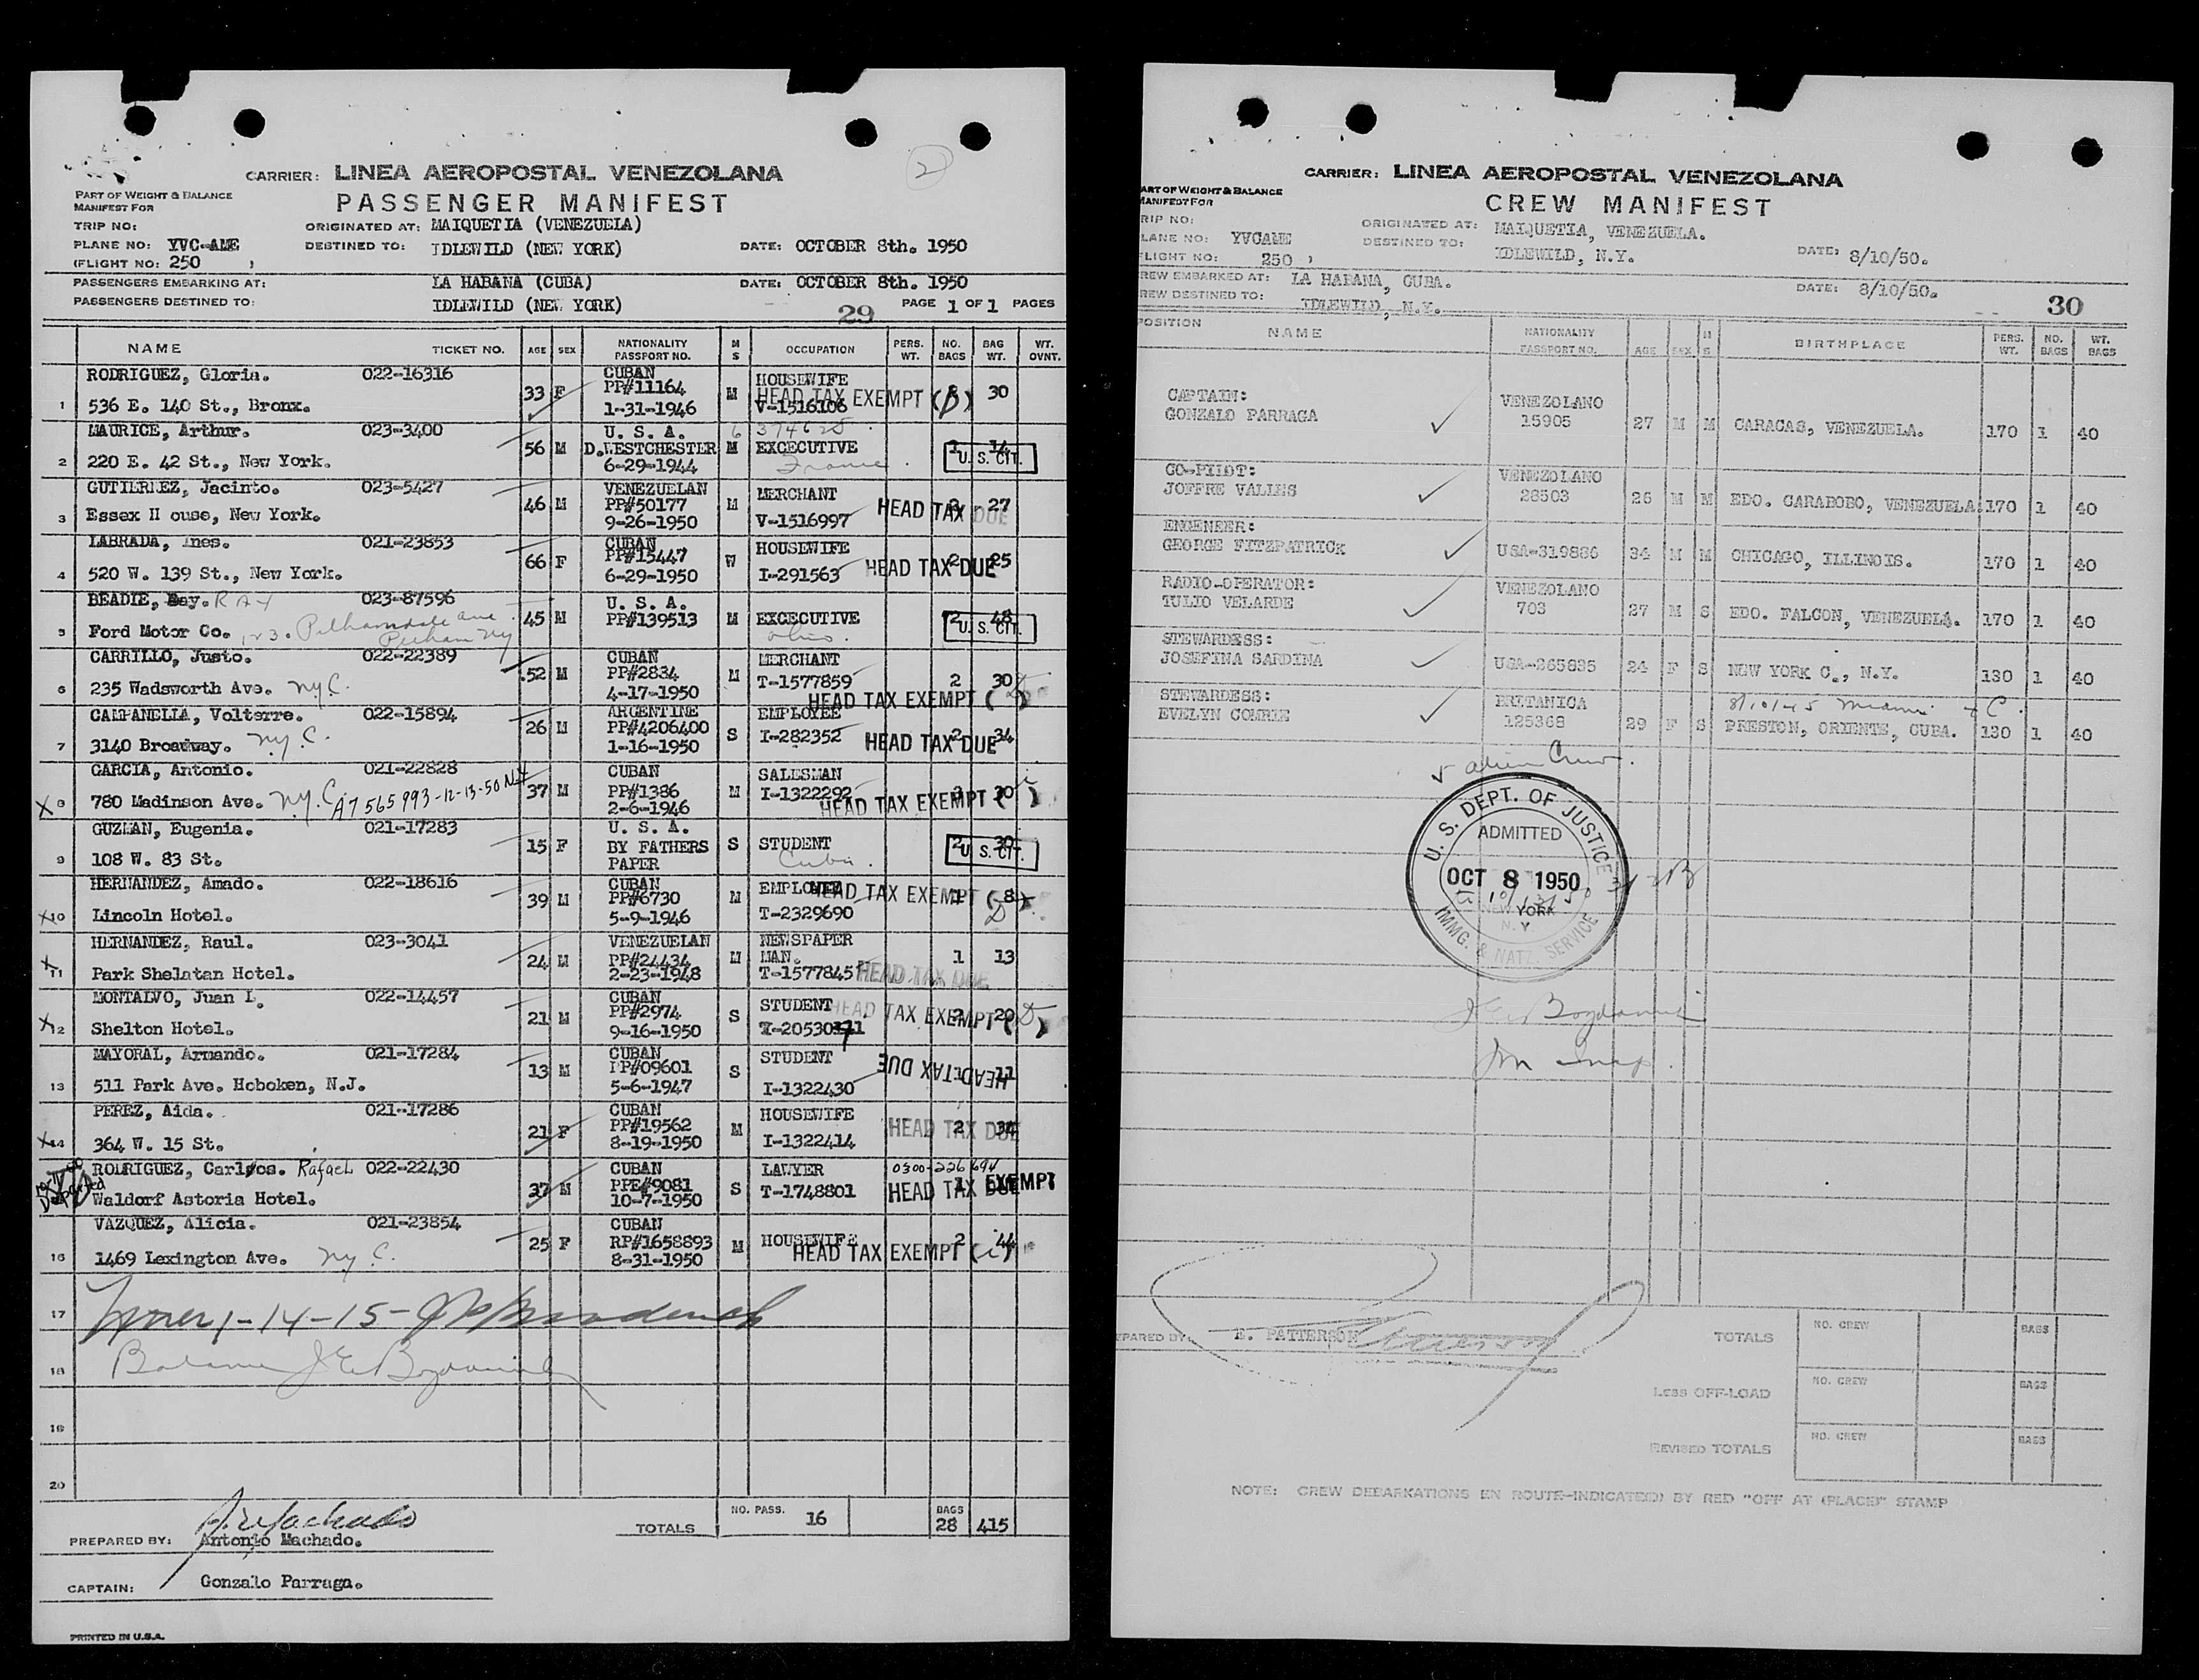 2
CARRIER: LINEA AEROPOSTAL VENEZOLANA
PART OF WEIGHT & BALANCE
MANIFEST FOR
PASSENGER MANIFEST
TRIP NO: ORIGINATED AT: MAIQUETIA (VENEZUELA)
PLANE NO: YVC-AME DESTINED TO: IDLEWILD (NEW YORK) DATE: OCTOBER 8th. 1950
(FLIGHT NO: 250 )
PASSENGERS EMBARKING AT: LA HABANA (CUBA) DATE: OCTOBER 8th. 1950
PASSENGERS DESTINED TO: IDLEWILD (NEW YORK) 29 PAGE 1 OF 1 PAGES
NAME TICKET NO. AGE SEX NATIONALITY PASSPORT NO. M S OCCUPATION PERS. WT. NO. BAGS BAG WT. WT. OVNT.
RODRIGUEZ, Gloria. 022-16316 CUBAN HOUSEWIFE
33 F PP#11164 M HEAD TAX EXEMPT 30
1 536 E. 140 St., Bronx. 1-31-1946 V-1516106
MAURICE, Arthur. 023-3400 U. S. A.
56 M D.WESTCHESTER M EXCECUTIVE 1 14 U. S. CIT.
2 220 E. 42 St., New York. 6-29-1944 France.
GUTIERREZ, Jacinto. 023-5427 VENEZUELAN MERCHANT
46 M PP#50177 M HEAD TAX DUE 2 27
3 Essex H ouse, New York. 9-26-1950 V-1516997
LABRADA, Ines. 021-23853 CUBAN HOUSEWIFE
66 F PP#15447 W HEAD TAX DUE 2 25
4 520 W. 139 St., New York. 6-29-1950 I-291563
BEADIE, Ray. RAY 023-87596 U. S. A.
45 M PP#139513 M EXCECUTIVE 2 48 U. S. CIT.
5 Ford Motor Co. 123. Pelhamdale ave Pelham NY Ohio.
CARRILLO, Justo. 022-22389 CUBAN MERCHANT
52 M PP#2834 M T-1577859 2 30
6 235 Wadsworth Ave. N.Y.C. 4-17-1950 HEAD TAX EXEMPT
CAMPANELLA, Volterre. 022-15894 ARGENTINE EMPLOYEE
26 M PP#4206400 S I-282352 HEAD TAX DUE 2 34
7 3140 Broadway. N.Y.C. 1-16-1950
GARCIA, Antonio. 021-22828 CUBAN SALESMAN
37 M PP#1386 M I-1322292
X 8 780 Madinson Ave. N.Y.C. A7 565 993-12-13-50 NY 2-6-1946 HEAD TAX EXEMPT (i)
GUZMAN, Eugenia. 021-17283 U. S. A.
15 F BY FATHERS S STUDENT 2 30 U. S. CIT.
9 108 W. 83 St. PAPER Cuba.
HERNANDEZ, Amado. 022-18616 CUBAN EMPLOYEE HEAD TAX EXEMPT
39 M PP#6730 M 1 8
X10 Lincoln Hotel. 5-9-1946 T-2329690
HERNANDEZ, Raul. 023-3041 VENEZUELAN NEWSPAPER
24 M PP#24434 M MAN. 1 13
X11 Park Shelatan Hotel. 2-23-1948 T-1577845 HEAD TAX DUE
MONTALVO, Juan L. 022-14457 CUBAN STUDENT
21 M PP#2974 S HEAD TAX EXEMPT 2 20
X12 Shelton Hotel. 9-16-1950
MAYORAL, Armando. 021-17284 CUBAN STUDENT
13 M PP#09601 S HEAD TAX DUE 11
13 511 Park Ave. Hoboken, N.J. 5-6-1947 I-1322430
PEREZ, Aida. 021-17286 CUBAN HOUSEWIFE
21 F PP#19562 M HEAD TAX DUE 2 34
X14 364 W. 15 St. 8-19-1950 I-1322414
RODRIGUEZ, Carlos. Rafael 022-22430 CUBAN LAWYER 0300-226694
37 M PPE#9081 S T-1748801 HEAD TAX DUE EXEMPT 1
Departed Waldorf Astoria Hotel. 10-7-1950
VAZQUEZ, Alicia. 021-23854 CUBAN
25 F RP#1658893 M HOUSEWIFE 2 44
16 1469 Lexington Ave. N.Y.C. 8-31-1950 HEAD TAX EXEMPT (i)
17 1-14-15-
18
19
20
NO. PASS. 16 BAGS 28 415
TOTALS
A. Machado
PREPARED BY: Antonio Machado.
CAPTAIN: Gonzalo Parraga.
PRINTED IN U.S.A.
CARRIER: LINEA AEROPOSTAL VENEZOLANA
PART OF WEIGHT & BALANCE
MANIFEST FOR
CREW MANIFEST
RIP NO: ORIGINATED AT: MAIQUETIA, VENEZUELA.
LANE NO: YVCAME DESTINED TO: IDLEWILD, N.Y. DATE: 8/10/50.
FLIGHT NO: 250 )
REW EMBARKED AT: LA HABANA, CUBA. DATE: 8/10/50.
REW DESTINED TO: IDLEWILD, N.Y. 30
POSITION NAME NATIONALITY PASSPORT NO. AGE SEX M S BIRTHPLACE PERS. WT. NO. BAGS WT. BAGS
CAPTAIN: VENEZOLANO
GONZALO PARRAGA 15905 27 M M CARACAS, VENEZUELA. 170 1 40
CO-PILOT: VENEZOLANO
JOFFRE VALLES 28503 26 M M EDO. CARABOBO, VENEZUELA. 170 1 40
ENGENEER:
GEORGE FITZPATRICK USA-319886 34 M M CHICAGO, ILLINOIS. 170 1 40
RADIO-OPERATOR: VENEZOLANO
TULIO VELARDE 703 27 M S EDO. FALCON, VENEZUELA. 170 1 40
STEWARDESS:
JOSEFINA SARDINA USA-365835 24 F S NEW YORK C., N.Y. 130 1 40
STEWARDESS: BRITANICA 8/10/45 Miami
EVELYN COMRIE 125368 29 F S PRESTON, ORIENTE, CUBA. 130 1 40
alien Crew.
U. S. DEPT. OF JUSTICE
ADMITTED
OCT 8 1950
NEW YORK
N. Y
IMMG. & NATZ. SERVICE
EPARED BY: E. PATTERSON
TOTALS NO. CREW BAGS
LESS OFF-LOAD NO. CREW BAGS
REVISED TOTALS NO. CREW BAGS
NOTE: CREW DEBARKATIONS EN ROUTE-INDICATED BY RED "OFF AT (PLACE)" STAMP